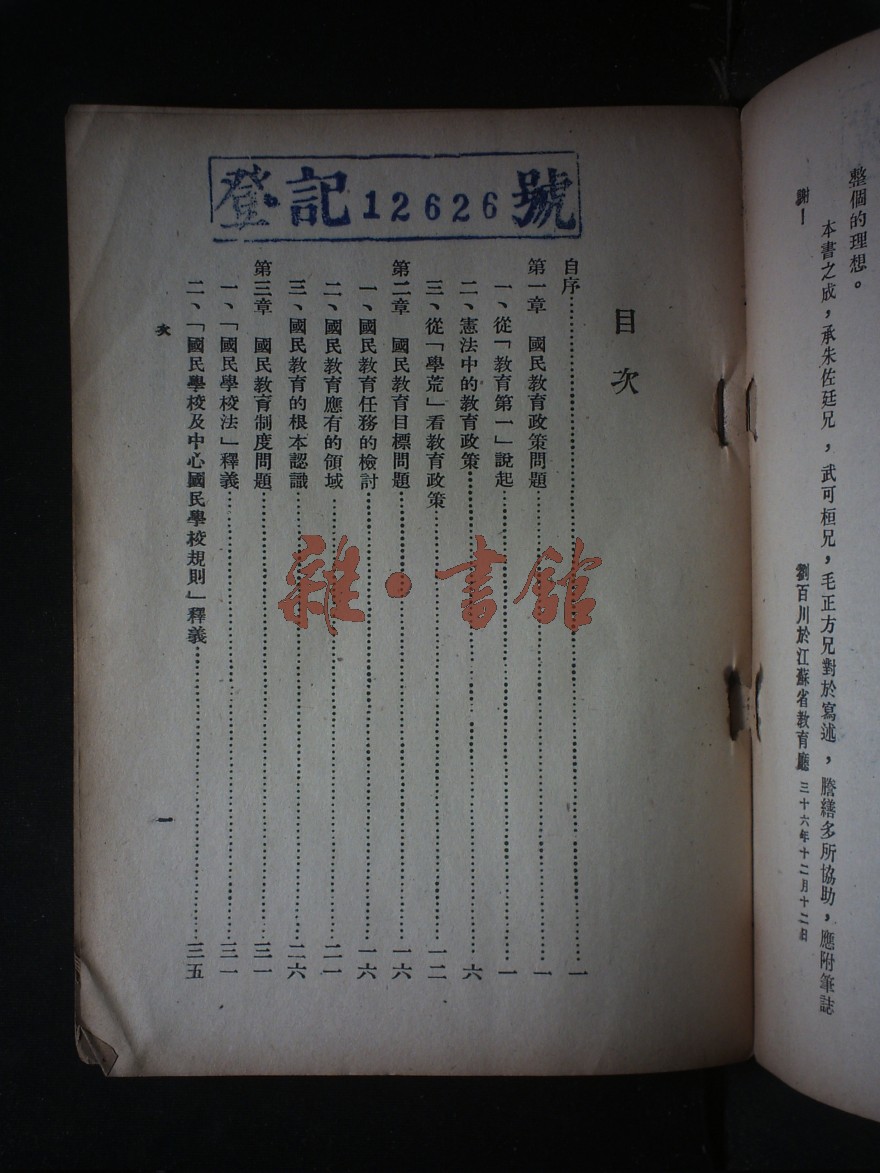 整個的理想。
本書之成，承朱佐廷兄，武可桓兄，毛正方兄對於寫述，謄繕多所協助，應附筆誌
謝！
劉百川於江蘇省教育廳 三十六年十二月十二日
登記12626號
目次
自序……一
第一章 國民教育政策問題……一
一、從「教育第一」說起……一
二、憲法中的教育政策……六
三、從「學荒」看教育政策……一二
第二章 國民教育目標問題……一六
一、國民教育任務的檢討……一六
二、國民教育應有的領域……二一
三、國民教育的根本認識……二六
第三章 國民教育制度問題……三一
一、「國民學校法」釋義……三一
二、「國民學校及中心國民學校規則」釋義……三五
次
一
雜·書館